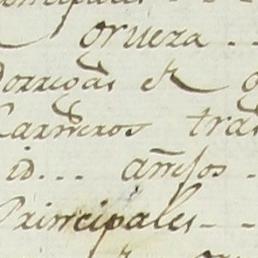 oruera - -
Borregas et
Carneros tras
id... añejos -
Principales - -